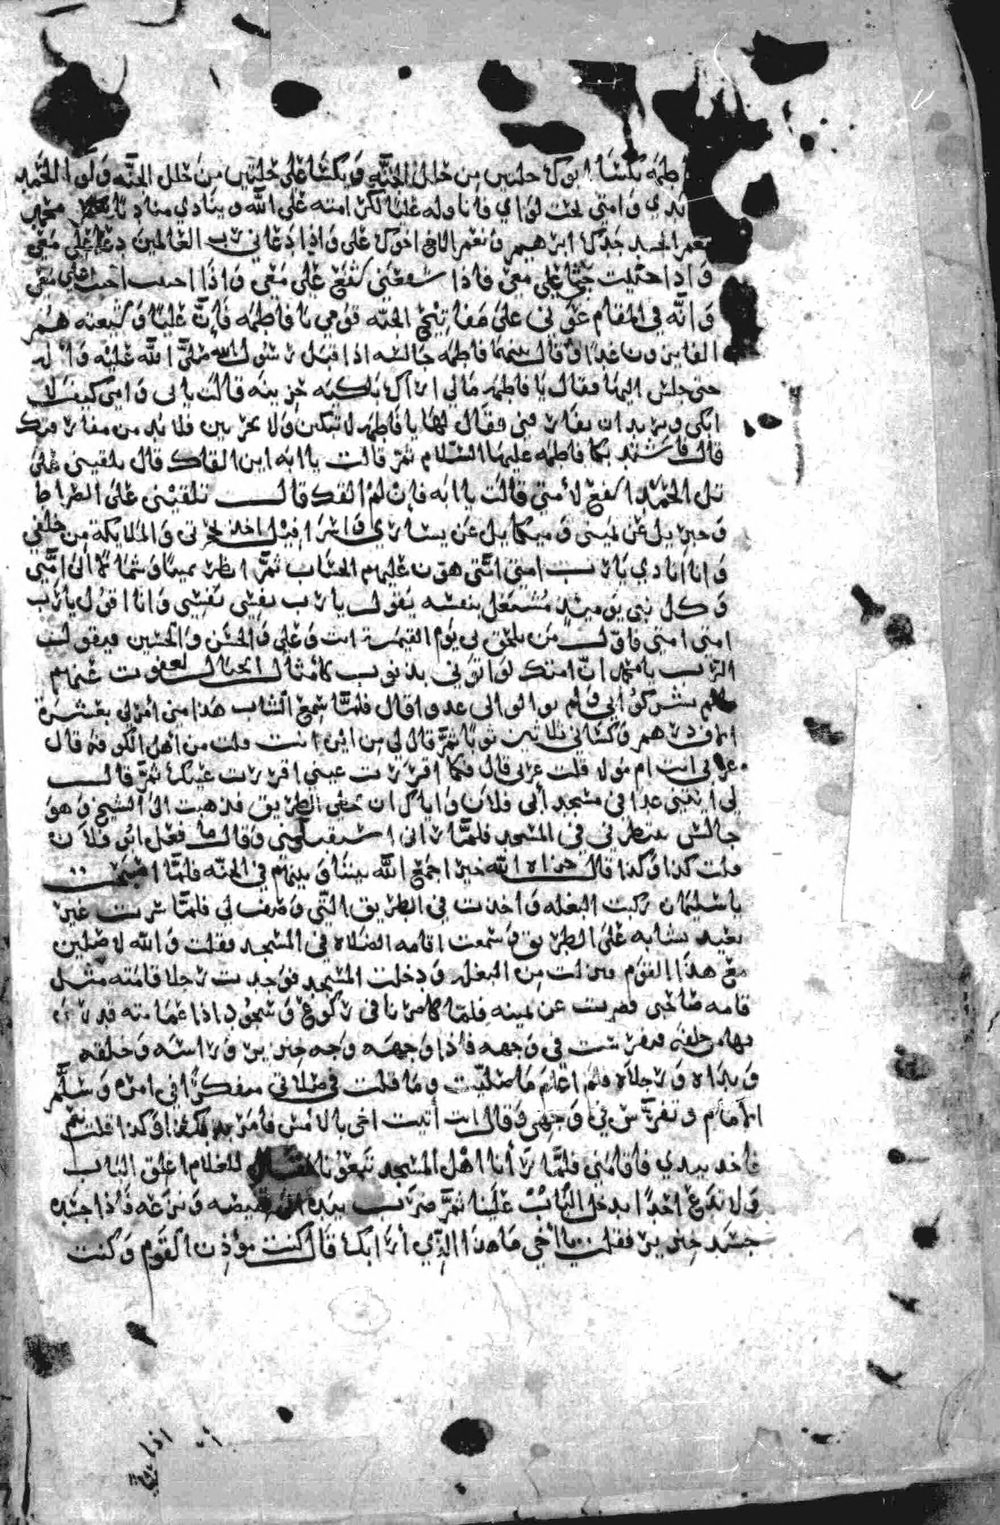 فاطمه يكسا ابوك حلتين من حلل الجنه ويكسا علي حلتين من حلل الجنه ولوا الحمد
بيدي وامتي تحت لواي فاناوله عليا لكرامته على الله وينادي مناد يا محمد
نعم الجد جدك ابرهيم ونعم الاخ اخوك علي واذا دعاني رب العالمين دعا علي معي
واذا حييت حيا علي معي فاذا شفعني شفع علي معي واذا اجيب علي معي
وانه في المقام عوني على مفاتيح الجنه قومي يا فاطمه فان عليا وشيعته هم
الفايزون غدا وقال بينما فاطمه جالسه اذ اقبل رسول الله صلى الله عليه واله
حتى جلس اليها فقال يا فاطمه مالي اراك باكيه حزينه قالت يابي وامي كيف لا
ابكي وتريد ان تفارقني فقال لها يا فاطمه لا تبكين ولا تحزنين فلا بد من مفارقتك
قال فاشتد بكا فاطمه عليها السلام ثم قالت يا ابه اين القاك قال تلقيني على
تل الحمد اشفع لامتي قالت يا ابه فان لم القك قال تلقيني على الصراط
وجبريل عن يميني وميكاييل عن يساري واسرافيل اخذ بحجزتي والملايكة من خلفي
وانا انادي يا رب امتي امتي هون عليهم الحساب ثم انظر يمينا وشمالا الى امتي
وكل نبي يوميذ مشتغل بنفسه يقول يا رب نفسي نفسي وانا اقول يا رب
امتي امتي فاول من يلحق بي يوم القيمة انت وعلي والحسن والحسين فيقول
الرب يا محمد ان امتك لو اتوني بذنوب كامثال الجبال لعفوت عنهم
ما لم يشركوا بي ولم يوالوا لي عدوا قال فلما سمع الشاب هذا مني امر لي بعشرة
الاف درهم وكساني ثلاثين ثوبا ثم قال لي من اين انت قلت من اهل الكوفه قال
عربي انت ام مولا قلت عربي قال فكما اقررت عيني اقررت عينك ثم قال
لي ايتني غدا في مسجد ابي فلان واياك ان تخطي الطريق فذهبت الى الشيخ وهو
جالس ينتظرني في المسجد فلما راني استقبلني وقال ما فعل ابو فلان
قلت كذا وكذا قال جزاه الله خيرا جمع الله بيننا وبينهم في الجنه فلما اصبحت
يا سليمان ركبت البغله واخذت في الطريق التي وصف لي فلما سرت غير
بعيد تشابه على الطريق وسمعت اقامه الصلاه في المسجد فقلت والله لاصلين
مع هذا القوم فنزلت من البغله ودخلت المسجد فوجدت رجلا قامته مثل
قامه صاحبي فصرت عن يمينه فلما صرنا في ركوع وسجود اذا عمامته قد رمى
بها من خلفه فتفرست في وجهه فاذا وجهه وجه خنزير وراسه وخلقه
ويداه ورجلاه فلم اعلم ما صليت وما قلت في صلاتي متفكرا في امره وسلم
الامام وتفرس في وجهي وقال انت اتيت اخي بالامس فامر لك بكذا وكذا قلت نعم
فاخذ بيدي فاقامني فلما رانا اهل المسجد تبعونا فقال للغلام اغلق الباب
ولا تدع احدا يدخل علينا ثم ضرب بيده الى قميصه ونزعه فاذا جسده
جسد خنزير فقلت يا اخي ما هذا الذي ارا بك قال كنت مؤذن القوم وكنت
اذا